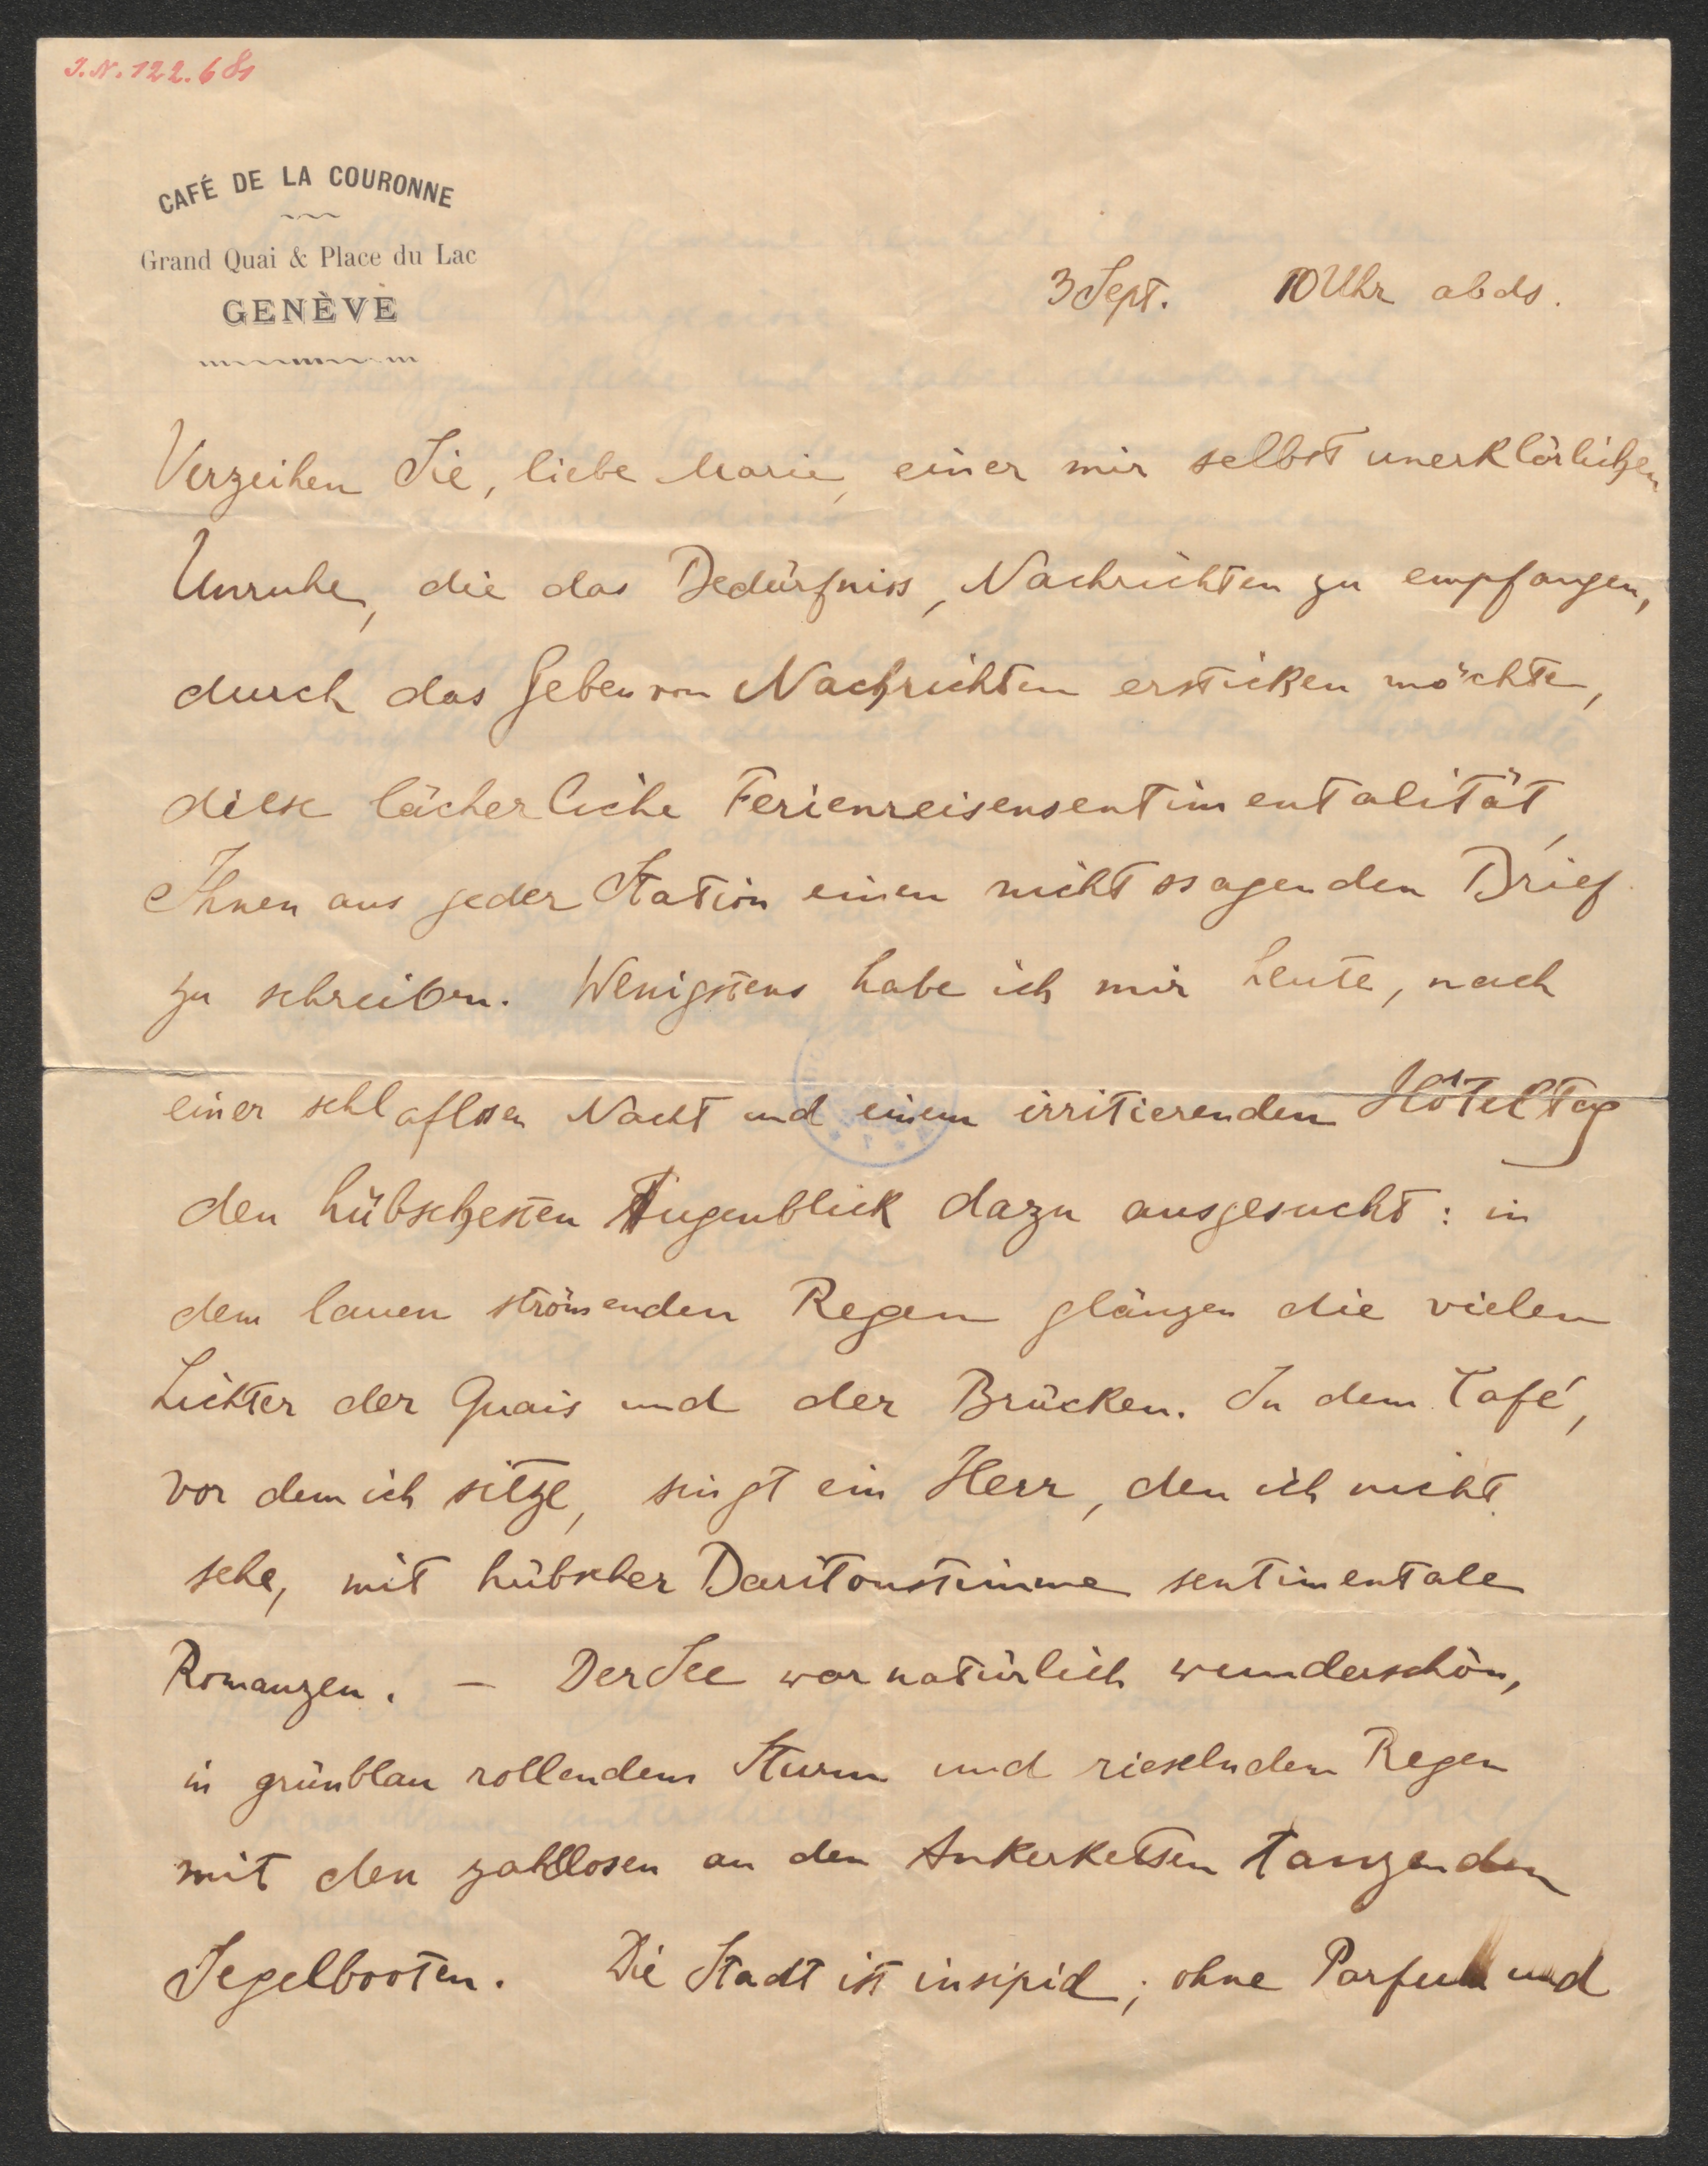 J.N. 122.681
CAFÉ DE LA COURONNE
Grand Quai & Place du Lac
GENÈVE
3 Sept. 10 Uhr abds.
Verzeihen Sie, liebe Marie, einer mir selbst unerklärlichen
Unruhe, die das Bedürfniss, Nachrichten zu empfangen,
durch das Geben von Nachrichten ersticken möchte,
diese lächerliche Ferienreisensentimentalität,
Ihnen aus jeder Station einen nichtssagenden Brief
zu schreiben. Wenigstens habe ich mir heute, nach
einer schlaflosen Nacht und einem irritierenden Hôteltag
den hübschesten Augenblick dazu ausgesucht: in
dem lauen strömenden Regen glänzen die vielen
Lichter der Quais und der Brücken. In dem Café,
vor dem ich sitze, singt ein Herr, den ich nicht
sehe, mit hübscher Baritonstimme sentimentale
Romanzen. – Der See war natürlich wunderschön,
in grünblau rollendem Sturm und rieselndem Regen
mit den zahllosen an den Ankerketten tanzenden
Segelbooten. Die Stadt ist insipid; ohne Parfum und